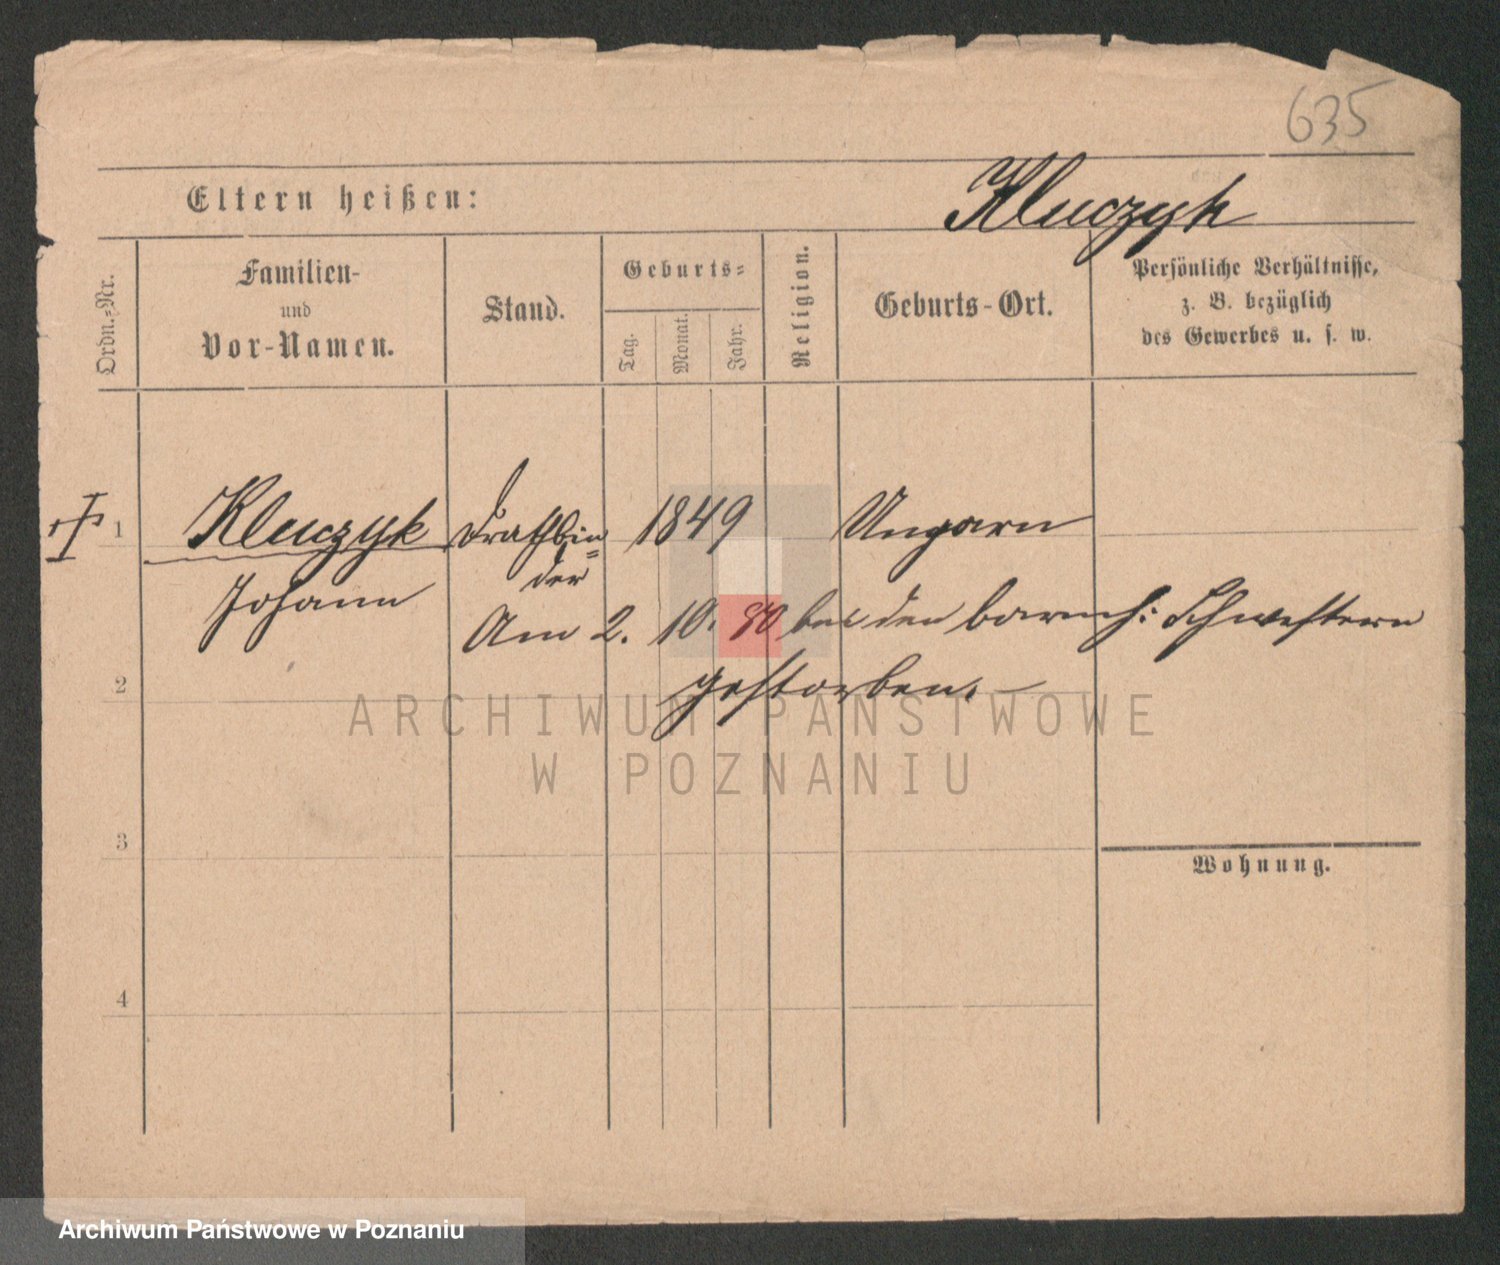 635
Eltern heißen:
Kluczyk
Ordn.-Nr.
Familien-
und
Vor-Namen.
Stand.
Geburts-
Tag.
Monat.
Jahr.
Religion.
Geburts-Ort.
Persönliche Verhältnisse,
z. B. bezüglich
des Gewerbes u. s. w.
1
Kluczyk
Johann
Drathbin=
der
1849
Ungarn
Am 2. 10. bei den barmh: Schwestern
gestorben.
2
3
4
Wohnung.
ARCHIWUM PAŃSTWOWE
W POZNANIU
Archiwum Państwowe w Poznaniu